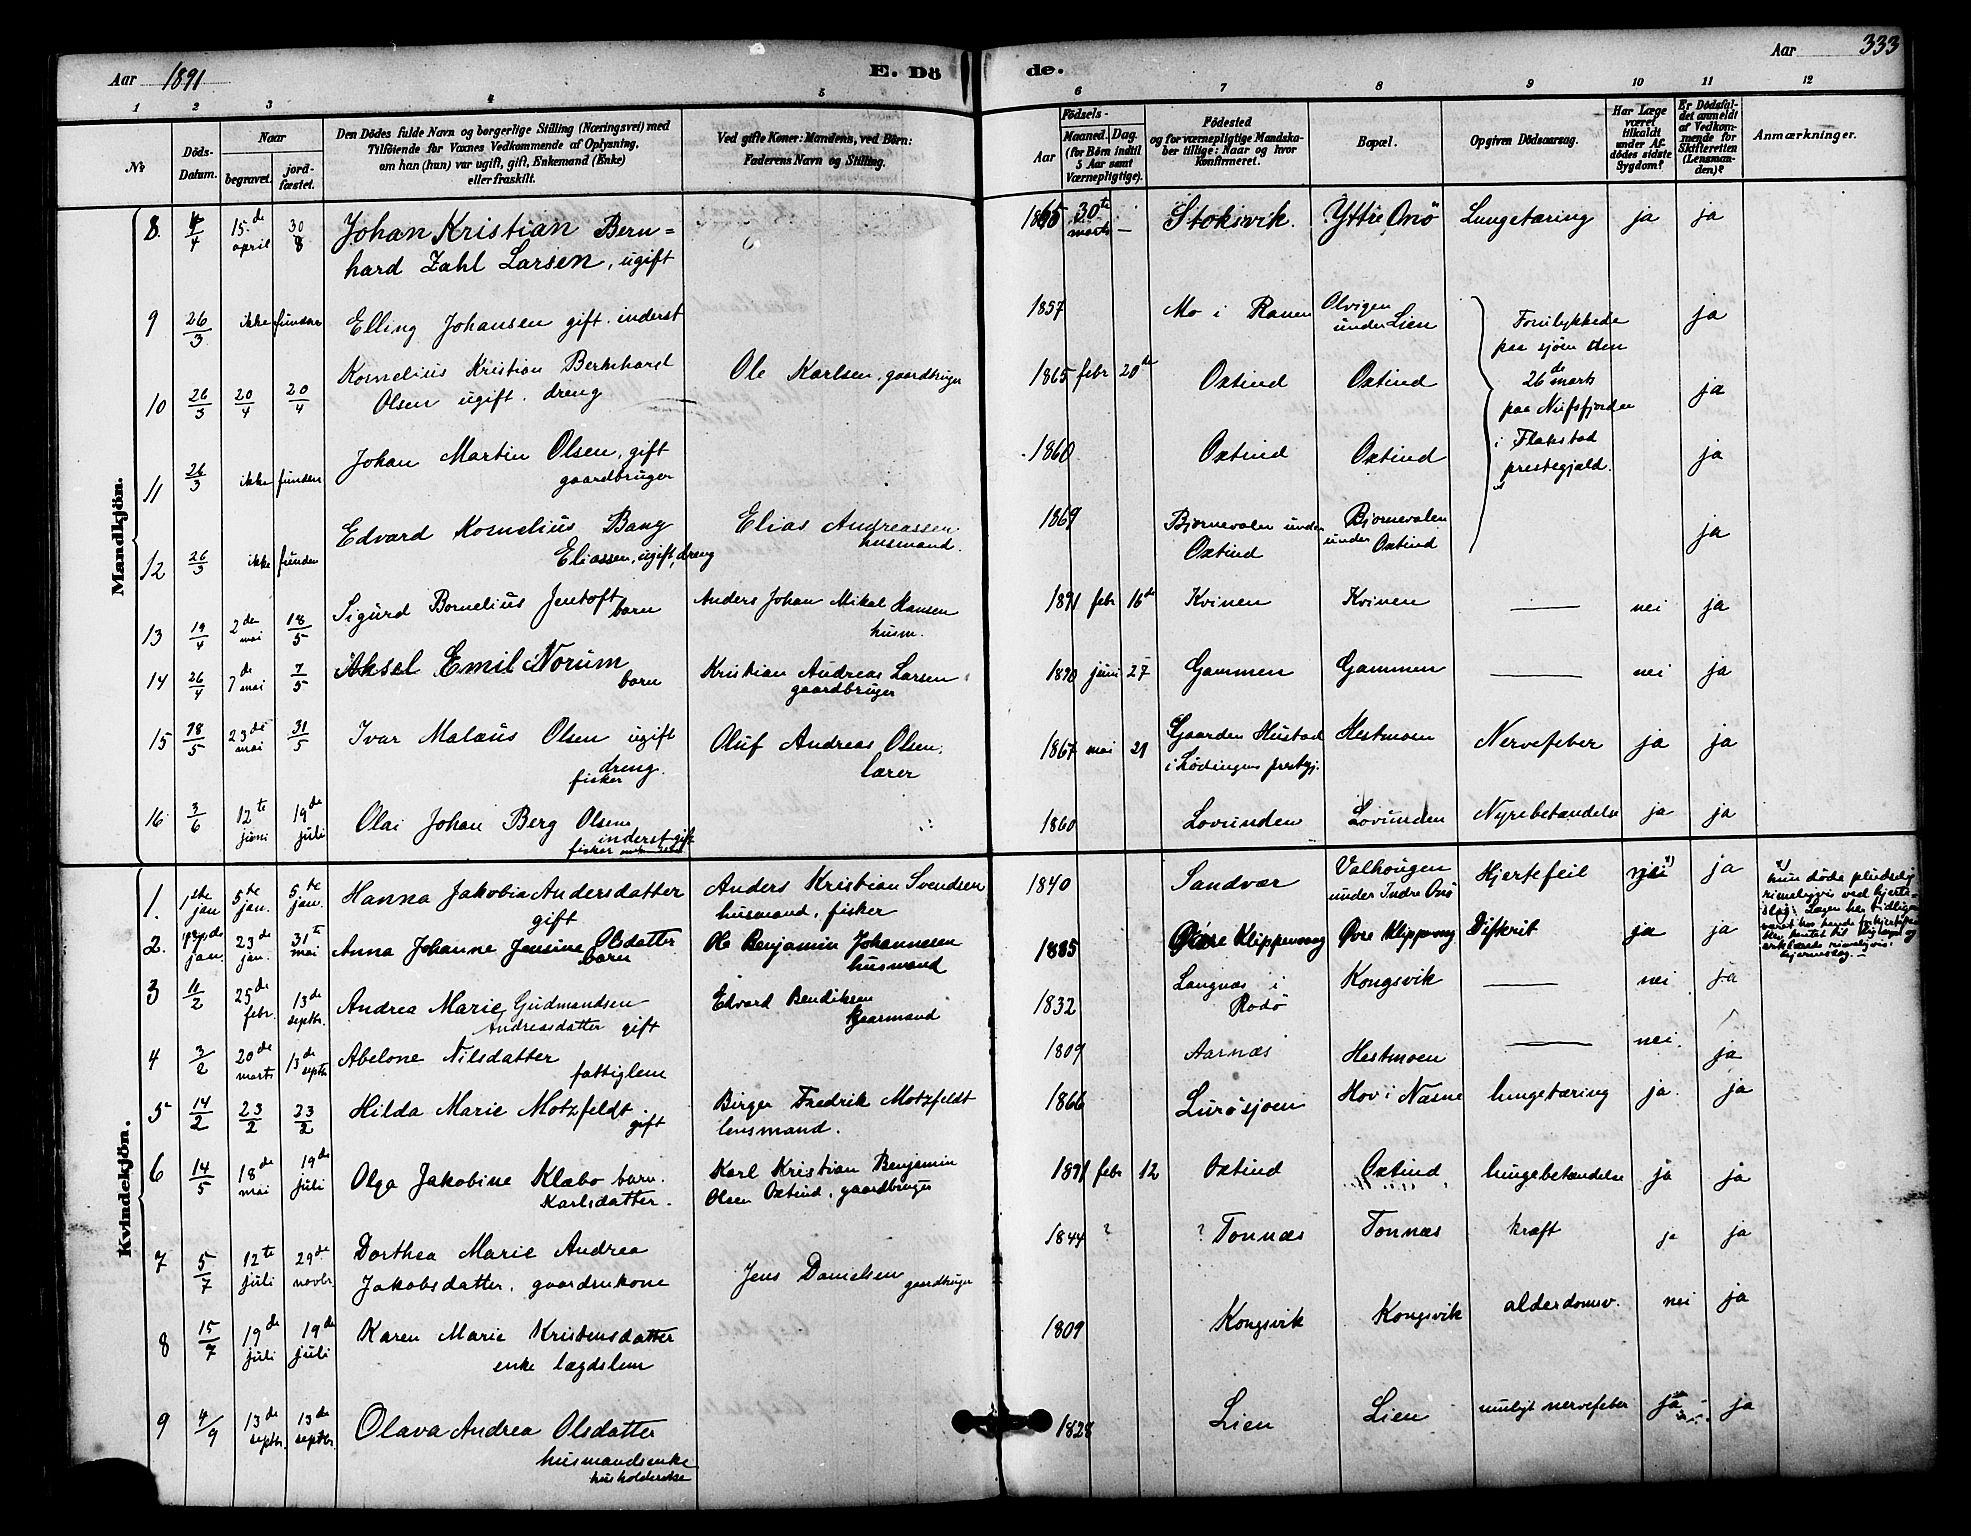 Aar 1891
E. Dö
de.
Aar
333
1 2 3 4 5 6 7 8 9 10 11 12
No
Döds-Datum.
Naar
begravet.
jord-fæstet.
Den Dödes fulde Navn og borgerlige Stilling (Næringsvei) med
Tilföiende for Voxnes Vedkommende af Oplysning,
om han (hun) var ugift, gift, Enkemand (Enke)
eller fraskilt.
Ved gifte Koner: Mandens, ved Börn:
Faderens Navn og Stilling.
Födsels-
Aar
Maaned. Dag.
(for Börn indtil
5 Aar samt
Værnepligtige).
Födested
og for værnepligtige Mandska-
ber tillige: Naar og hvor
konfirmeret.
Bopæl.
Opgiven Dödsaarsag.
Har Læge
været
tilkaldt
under Af-
dödes sidste
Sygdom?
Er Dödsfal-
det anmeldt
af Vedkom-
mende for
Skifteretten
(Lensman-
den)?
Anmærkninger.
Mandkjön.
8. 4/4 15.de april 30/8 Johan Kristian Bern=
hard Zahl Larsen, ugift
1865 30te marts Stoksvik. Yttre Onö Lungetæring ja ja
9 26/3 ikke funden Elling Johansen gift. inderst
1857 Mo i Ranen Olvigen
under Lien ja
10 26/3 20/4 20/4 Kornelius Kristian Bernhard
Olsen ugift. dreng
Ole Karlsen, gaardbruger
1865 febr 20de Oxtind Oxtind ja
Forulykkede
paa sjöen den
26de marts
paa Nufsfjorden
i Flakstad
prestegjæld.
11 26/3 ikke funden Johan Martin Olsen, gift
gaardbruger
1860 Oxtind Oxtind ja
12 26/3 ikke funden Edvard Kornelius Bang
Eliassen, ugift, dreng
Elias Andreassen.
husmand.
1869 Bjornevalen under
Oxtind
Bjornevalen
under Oxtind
ja
13 19/4 2den mai 18/5 Sigurd Bornelius Jentoft
barn
Anders Johan Mikal Hansen
husm.
1891 febr 16de Kvinen Kvinen — nei ja
14 26/4 7de mai 7/5 Aksel Emil Norum
barn
Kristian Andreas Larsen
gaardbruger
1890 juni 27 Gammen Gammen — nei ja
15 18/5 23de mai 31/5 Ivar Malaus Olsen ugift
dreng.
fisker
Oluf Andreas Olsen,
lærer
1867 mai 21 Gaarden Hustad
i Lödingens prestgj.
Hestmoen Nervefeber ja ja
16 3/6 12te juni 19de juli Olai Johan Berg Olsen
inderst gift
fisker
1860 Lovunden Lovunden Nyrebetændelse ja ja
Kvindekjön.
1. 1ste jan 5te jan. 5te jan. Hanna Jakobia Andersdatter
gift
Anders Kristian Svendsen
husmand, fisker
1840 Sandvær Valhougen
under Indre Onö
Hjertefeil nei ja
hun döde pludselig
rimeligvis ved hjerte-
slag. Lægen har tidligere
været hos hende for hjertefeil
2. jan. 23de jan. 31te mai Anna Johanne Jensine Olsdatter
barn
Ole Benjamin Johannesen
husmand
1885 Övre Klippevaag Övre Klippevaag Difkrit ja ja
3 11/2 25de febr. 13de septbr. Andrea Marie Gudmandsen
Andreasdatter gift
Edvard Bendiksen
kaarmand
1832 Langnæs i
Rodö
Kongsvik — nei ja
4 3/2 20de marts 13de septbr Abelone Nilsdatter
fattiglem
1809 Aarnæs Hestmoen — nei. ja
5 14/2 23/2 23/2 Hilda Marie Motzfeldt.
gift
Birger Fredrik Motzfeldt
lensmand.
1866 Lurösjoen Hov i Næsne lungetæring ja. ja
6 14/5 18de mai 19de juli Olga Jakobine Klæbo barn.
Karlsdatter.
Karl Kristian Benjamin
Olsen Oxtind, gaardbruger
1891 febr 12 Oxtind Oxtind lungebetændelse ja ja
7 5/7 12te juli 29de novbr. Dorthea Marie Andrea
Jakobsdatter. gaardmkone
Jens Danielsen
gaardbruger
1844 ? ? Tonnæs Tonnæs kræft ja ja
8 15/7 19de juli 19de juli Karen Marie Kristensdatter
enke lægdslem
1809 Kongsvik Kongsvik alderdomsv. nei ja
9 4/9 13de septbr. 13de septbr. Olava Andrea Olsdatter
husmandsenke
husholderske
1828 Lien Lien muligt nervefeber ja ja